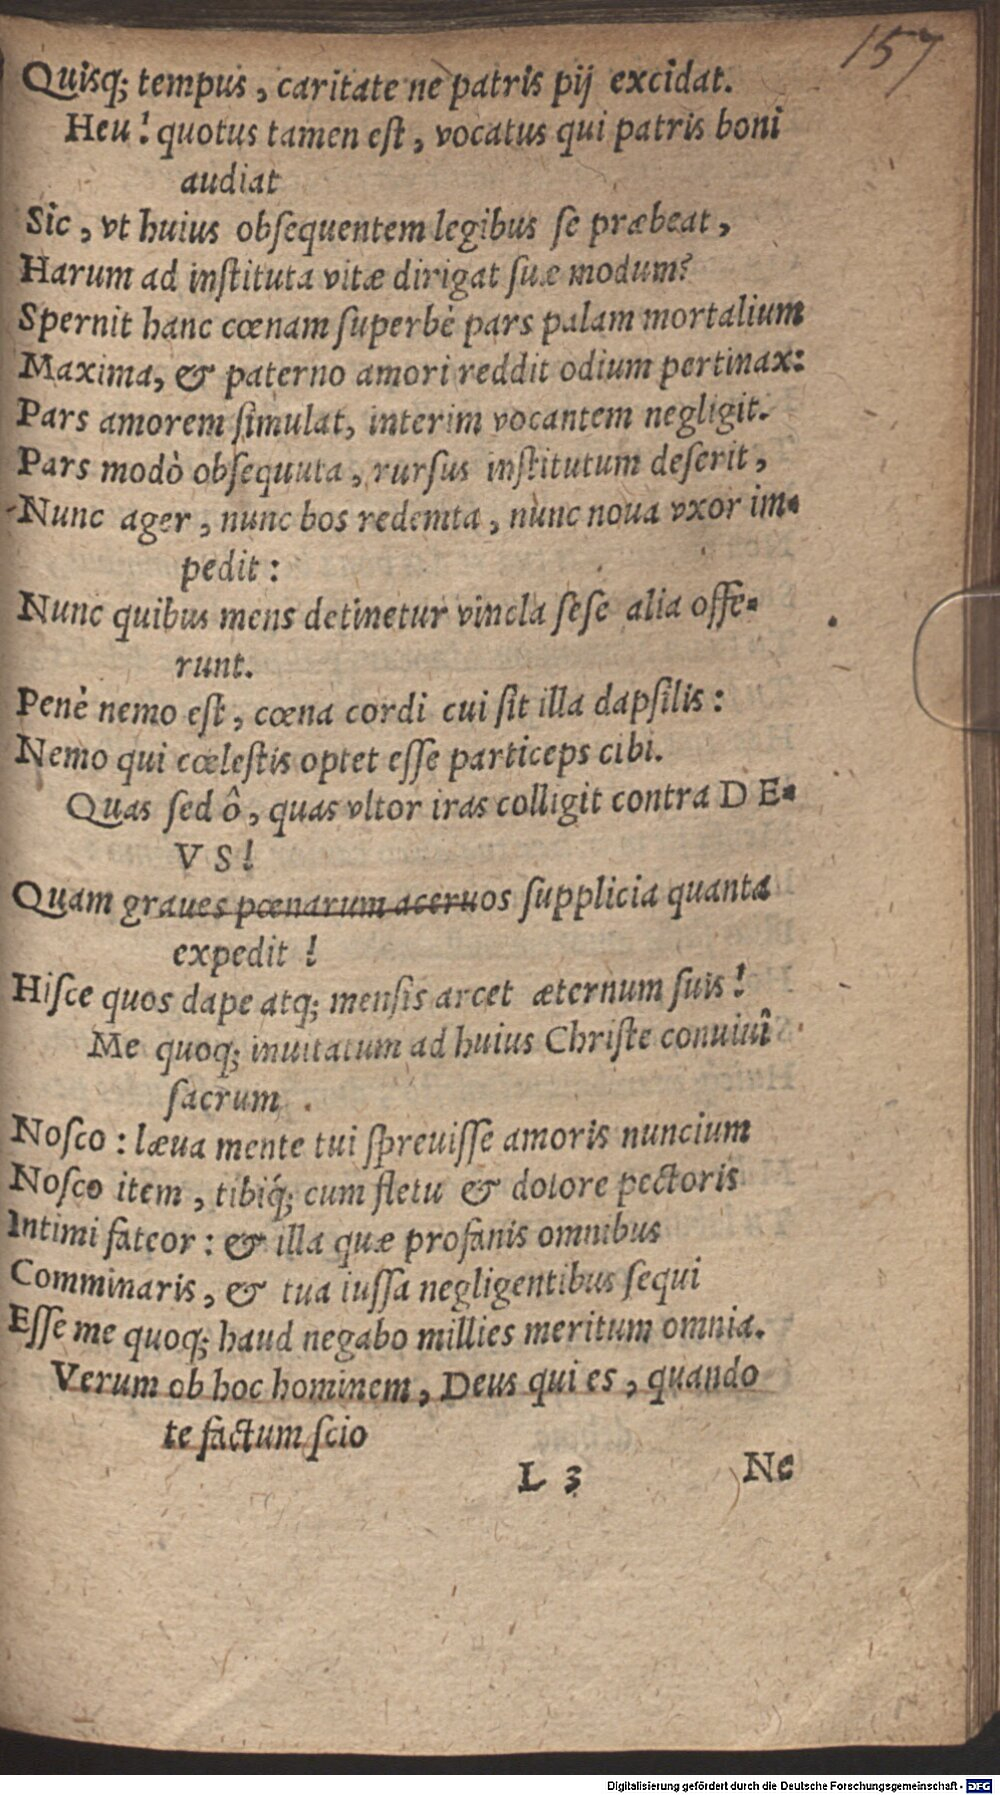 157
Quisq; tempus, caritate ne patris pij excidat.
Heu! quotus tamen eſt, vocatus qui patris boni
audiat
Sic, vt huius obſequentem legibus ſe præbeat,
Harum ad inſtituta vitæ dirigat ſuæ modum?
Spernit hanc cœnam ſuperbè pars palam mortalium
Maxima, & paterno amori reddit odium pertinax:
Pars amorem ſimulat, interim vocantem negligit.
Pars modò obſequuta, rurſus inſtitutum deſerit,
Nunc ager, nunc bos redemta, nunc noua vxor im-
pedit:
Nunc quibus mens detinetur vincla ſeſe alia offe-
runt.
Penè nemo eſt, cœna cordi cui ſit illa dapſilis:
Nemo qui cœleſtis optet eſſe particeps cibi.
Quas ſed ô, quas vltor iras colligit contra D E-
V S!
Quam graues pœnarum aceruos ſupplicia quanta
expedit!
Hiſce quos dape atq; menſis arcet æternum ſuis!
Me quoq; inuitatum ad huius Chriſte conuiuî
ſacrum.
Noſco: læua mente tui ſpreuiſſe amoris nuncium
Noſco item, tibiq́; cum fletu & dolore pectoris
Intimi fateor: & illa quæ profanis omnibus
Comminaris, & tua iuſſa negligentibus ſequi
Eſſe me quoq; haud negabo millies meritum omnia.
Verum ob hoc hominem, Deus qui es, quando
te factum ſcio
L 3 Ne
Digitalisierung gefördert durch die Deutsche Forschungsgemeinschaft - DFG